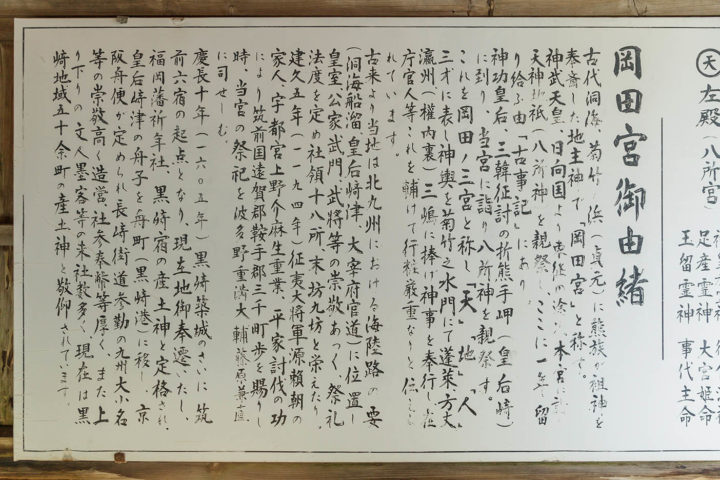 ㊇ 左殿(八所宮)
足産霊神 大宮姫命
玉留霊神 事代主命
岡田宮御由緒
古代洞海・菊竹ノ浜(貞元)に熊族が祖神を
奉斎した地主神で「岡田宮」と称す。
神武天皇、日向国より
天神地祇(八所神)を親祭し、ここに一年留
り給ふ由「古事記」にあり
神功皇后、三韓征討の折熊手岬(皇后崎)
に到り、当宮に詣り八所神を親祭す。
これを岡田ノ三宮と称し「天」「地」「人」
三才に表し神輿を菊竹之水門にて蓬莱、方丈、
瀛州(權内裏)三嶋に捧げ神事を奉行し
庁官人等これを輔けて行粧厳重なりと伝え
れています。
古来より当地は北九州における海陸路の要
(洞海船溜、皇后崎津、大宰府官道)に位置し
皇室、公家、武門、武将等の崇敬あつく、祭礼
法度を定め社領十八所、末坊九坊と栄えたり。
建久五年(一一九四年)征夷大将軍源頼朝の
家人、宇都宮上野介麻生重業、平家討伐の功
により筑前国遠賀郡鞍手郡三千町歩を賜りし
時、当宮の祭祀を波多野重満大輔藤原兼直
に司せしむ
慶長十年(一六〇五年)黒崎築城のさいに筑
前六宿の起点となり、現在地御奉遷いたし、
福岡藩祈年社、黒崎宿の産土神と定格され、
皇后崎津の舟子を舟町(黒崎港)に移し京
阪舟便が定められ長崎街道参勤の九州大小名
等の崇敬高く造営、社参奉幣等厚く、また上
り下りの文人墨客等の来社数多く、現在は黒
崎地域五十余町の産土神と敬仰されています。